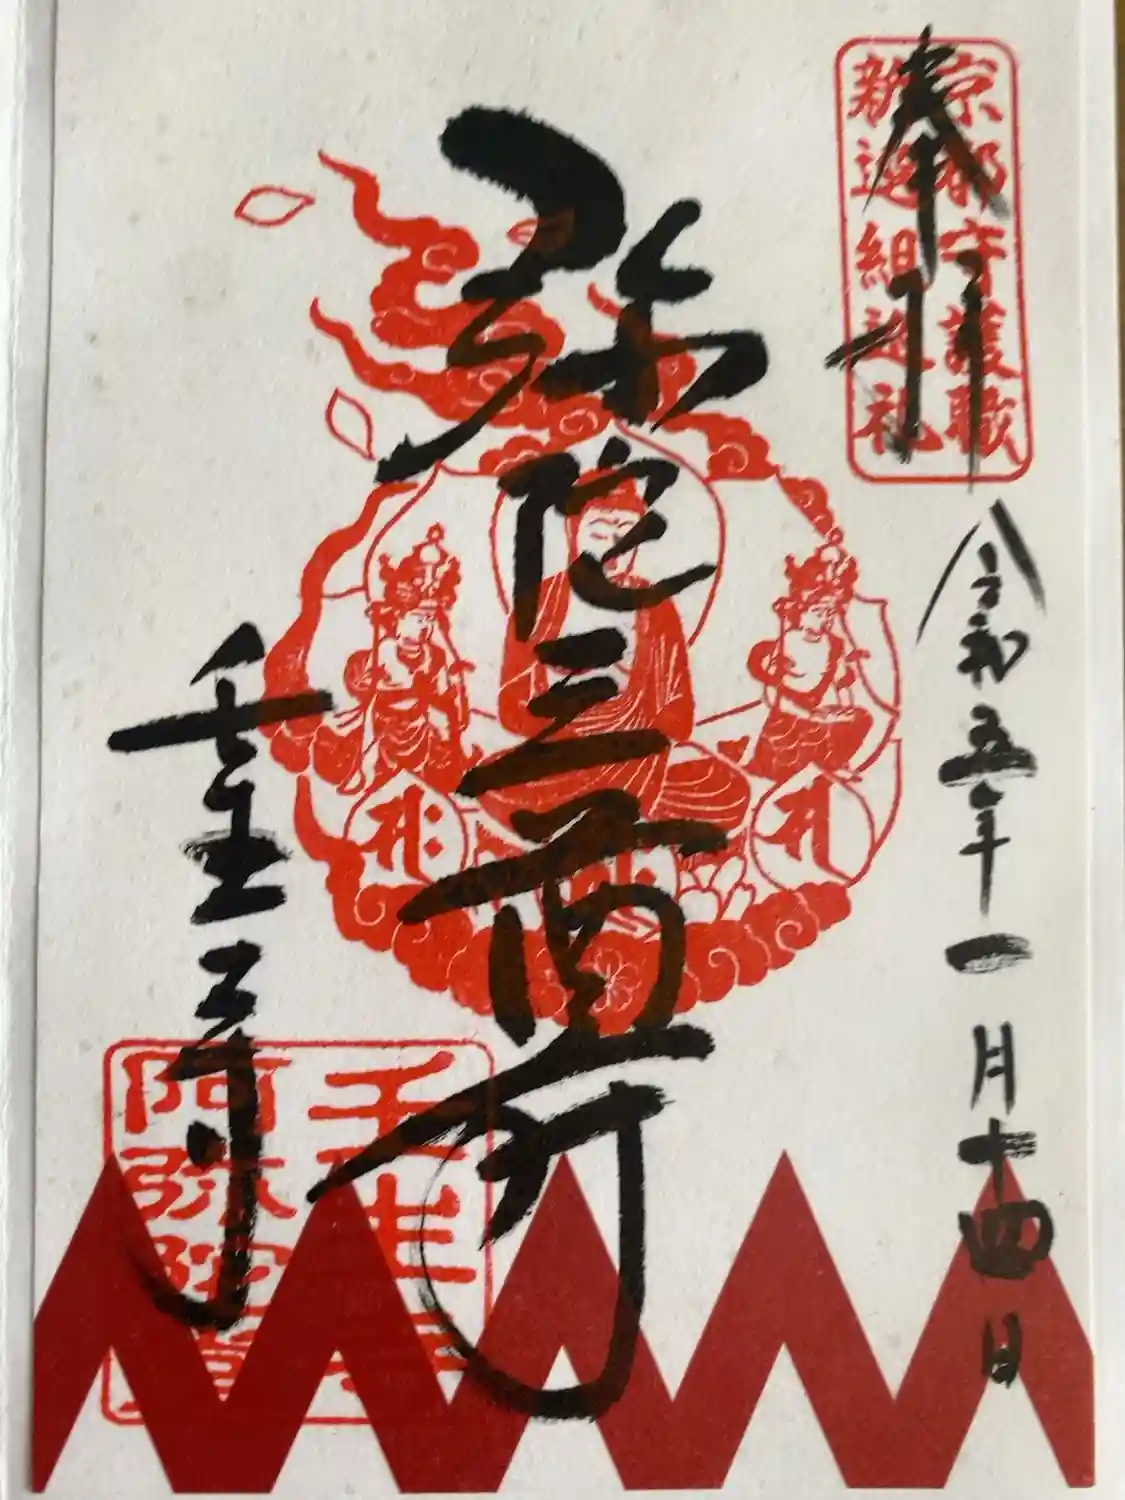 奉拝
京都守護職
新選組巡礼
令和五年一月十四日
弥陀三尊
壬生寺
壬生寺
阿弥陀堂